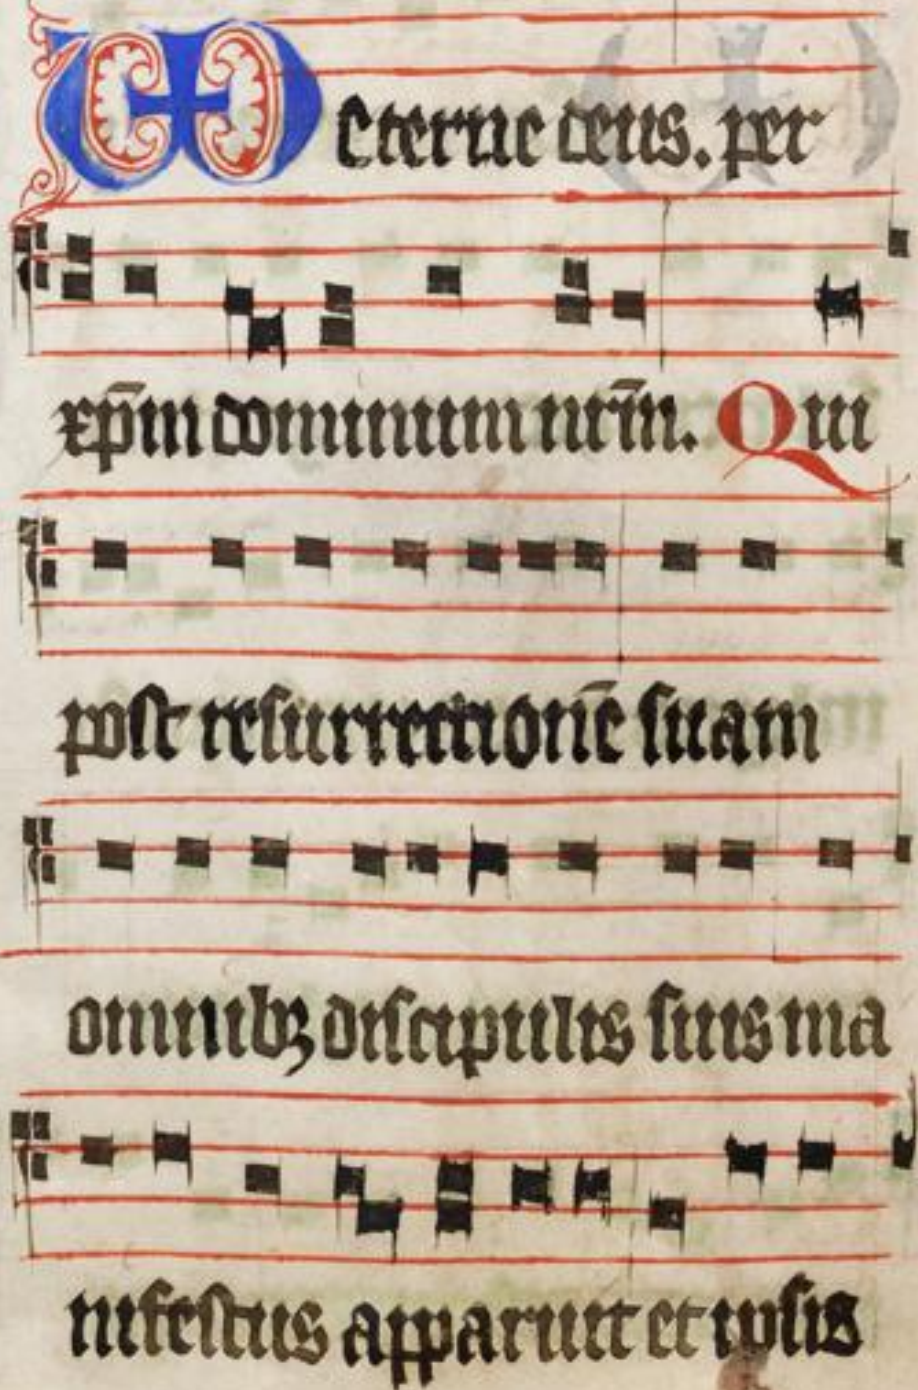 eterne deus. per
xp̄m dominum nr̄m. Qui
post resurrectionē suam
omnibꝫ discipulis suis ma
nifestus apparuit et ipsis